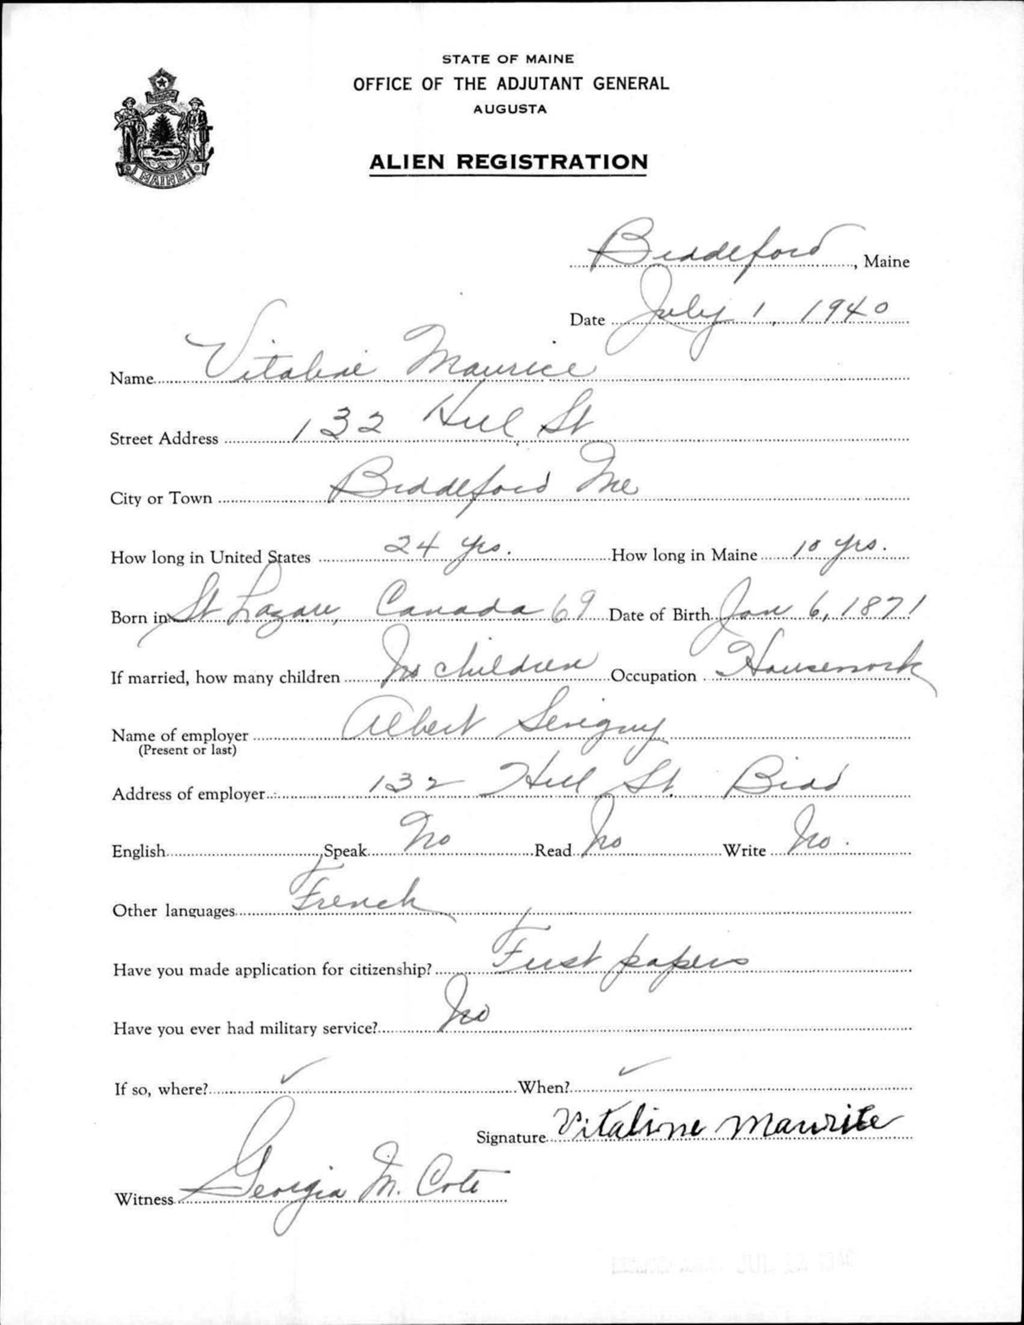 STATE OF MAINE
OFFICE OF THE ADJUTANT GENERAL
AUGUSTA
MAINE
ALIEN REGISTRATION
Biddeford, Maine
Date July 1, 1940
Name Vitaline Maurice
Street Address 132 Hill St
City or Town Biddeford Me
How long in United States 24 yrs. How long in Maine 10 yrs.
Born in St Lazare, Canada 69 Date of Birth Jan 6, 1871
If married, how many children No children Occupation Housework
Name of employer Albert Serigny
(Present or last)
Address of employer 132 Hill St. Bidd
English Speak No Read No Write No.
Other languages French
Have you made application for citizenship? First papers
Have you ever had military service? No
If so, where? ✓ When? ✓
Signature Vitaline Maurice
Witness Georgia M. Cote